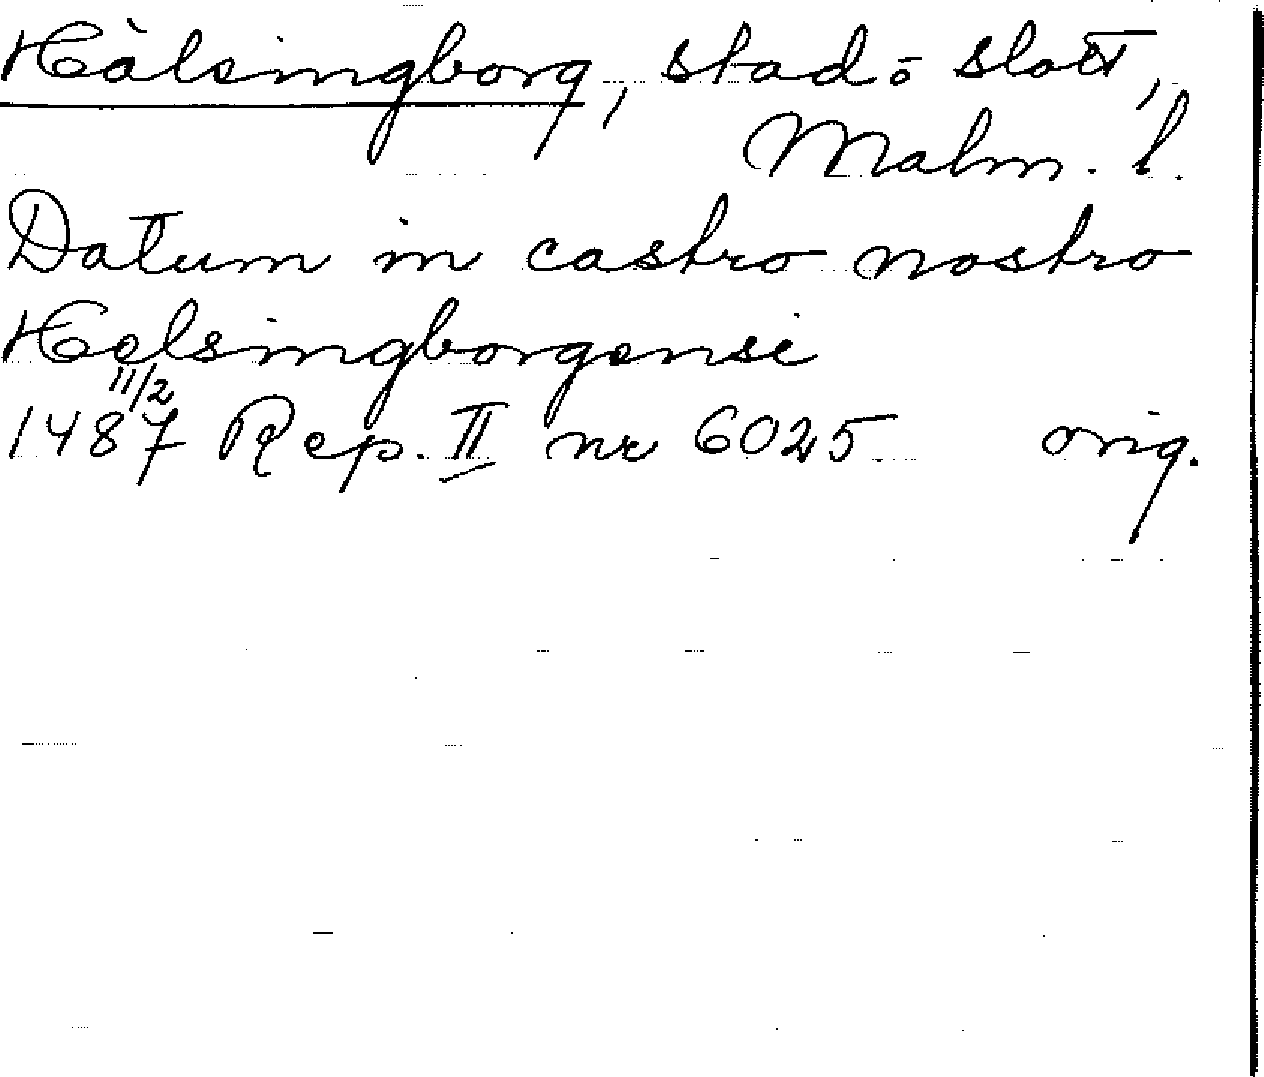 Hälsingborg, stad o slott,
Malm. l.
Datum in castro nostro
Helsingborgensi
11/2
1487 Rep. II nr 6025 orig.